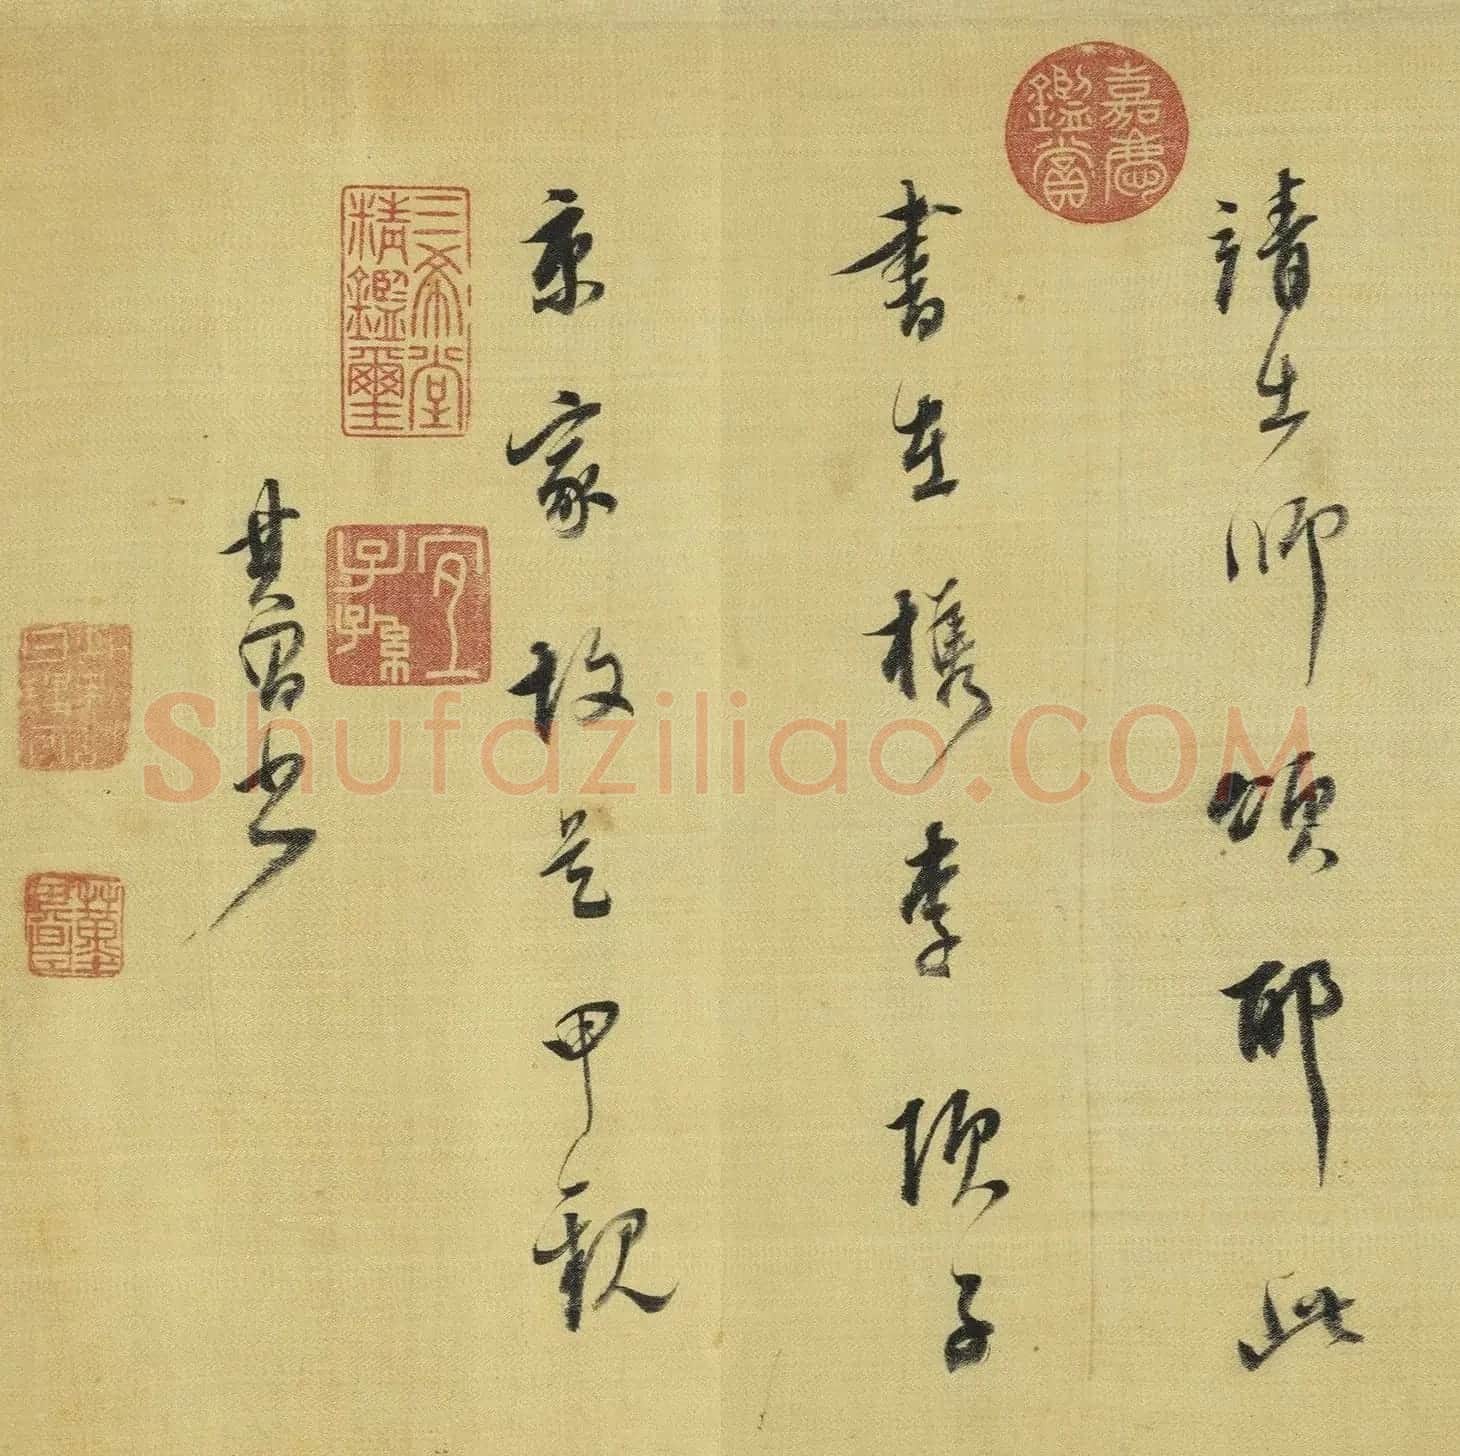 請出師頌耶此
書在檇李項子
京家故是甲觀
其昌書
嘉慶鑑賞
三希堂精鑑璽
宜子孫
Shufaziliao.COM